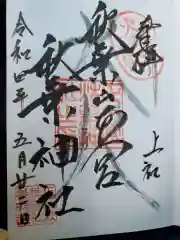 上社
秋葉山本宮
秋葉神社
令和四年五月廿二日